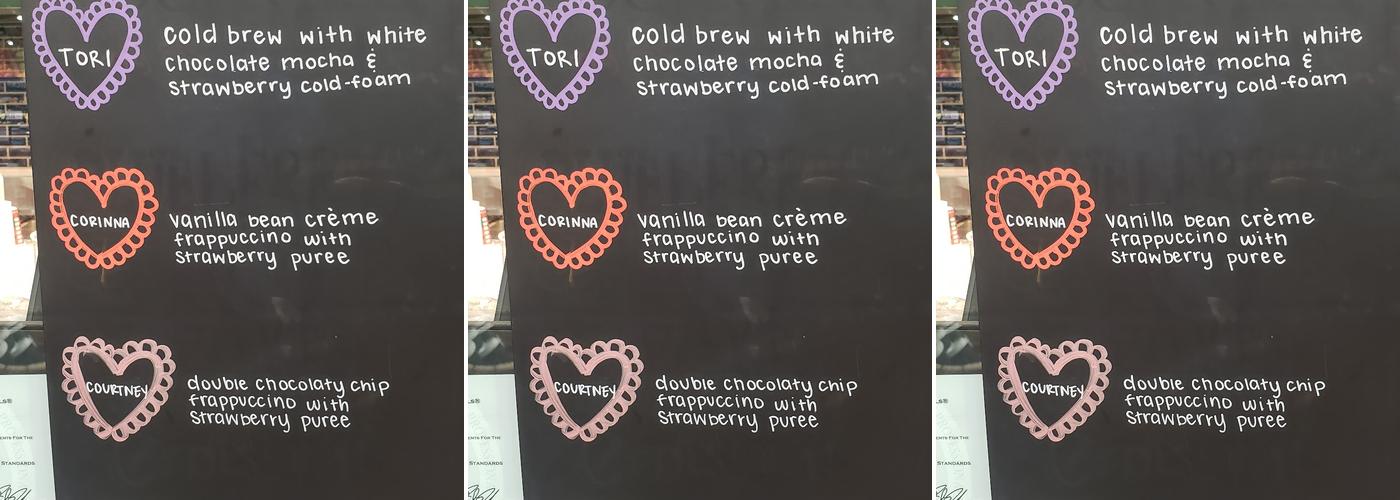 TORI
cold brew with white
chocolate mocha &
strawberry cold-foam
CORINNA
vanilla bean crème
frappuccino with
strawberry puree
COURTNEY
double chocolaty chip
frappuccino with
strawberry puree
LS®
ENTS FOR THE
STANDARDS
TORI
cold brew with white
chocolate mocha &
strawberry cold-foam
CORINNA
vanilla bean crème
frappuccino with
strawberry puree
COURTNEY
double chocolaty chip
frappuccino with
strawberry puree
LS®
ENTS FOR THE
STANDARDS
TORI
cold brew with white
chocolate mocha &
strawberry cold-foam
CORINNA
vanilla bean crème
frappuccino with
strawberry puree
COURTNEY
double chocolaty chip
frappuccino with
strawberry puree
LS®
ENTS FOR THE
STANDARDS